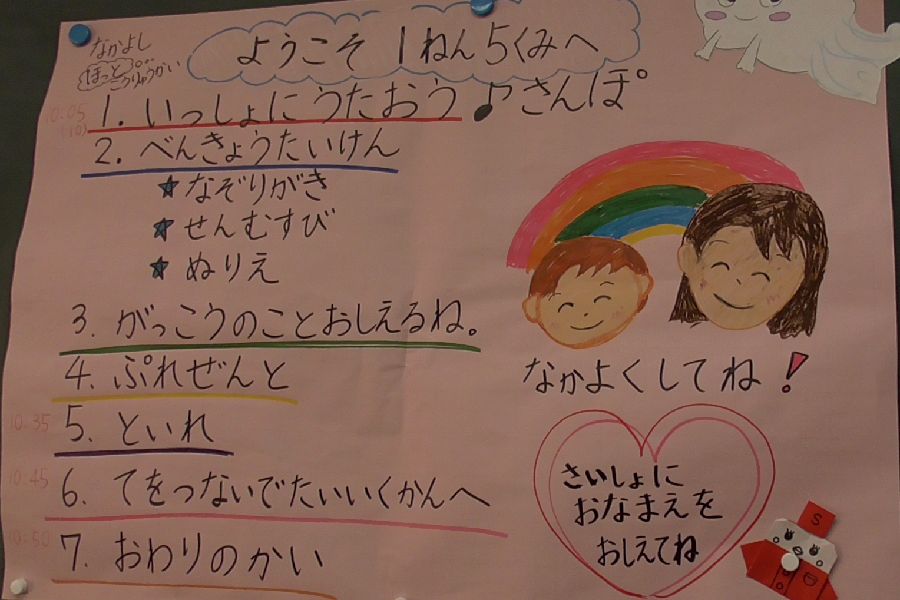 ようこそ 1ねん5くみへ
なかよし
ほっと
こうりゅうかい
10:05
(10)
1. いっしょにうたおう♪さんぽ
2. べんきょうたいけん
★なぞりがき
★せんむすび
★ぬりえ
3. がっこうのことおしえるね。
4. ぷれぜんと
なかよくしてね!
10:35
5. といれ
10:45
6. てをつないでたいいくかんへ
10:50
7. おわりのかい
さいしょに
おなまえを
おしえてね
S